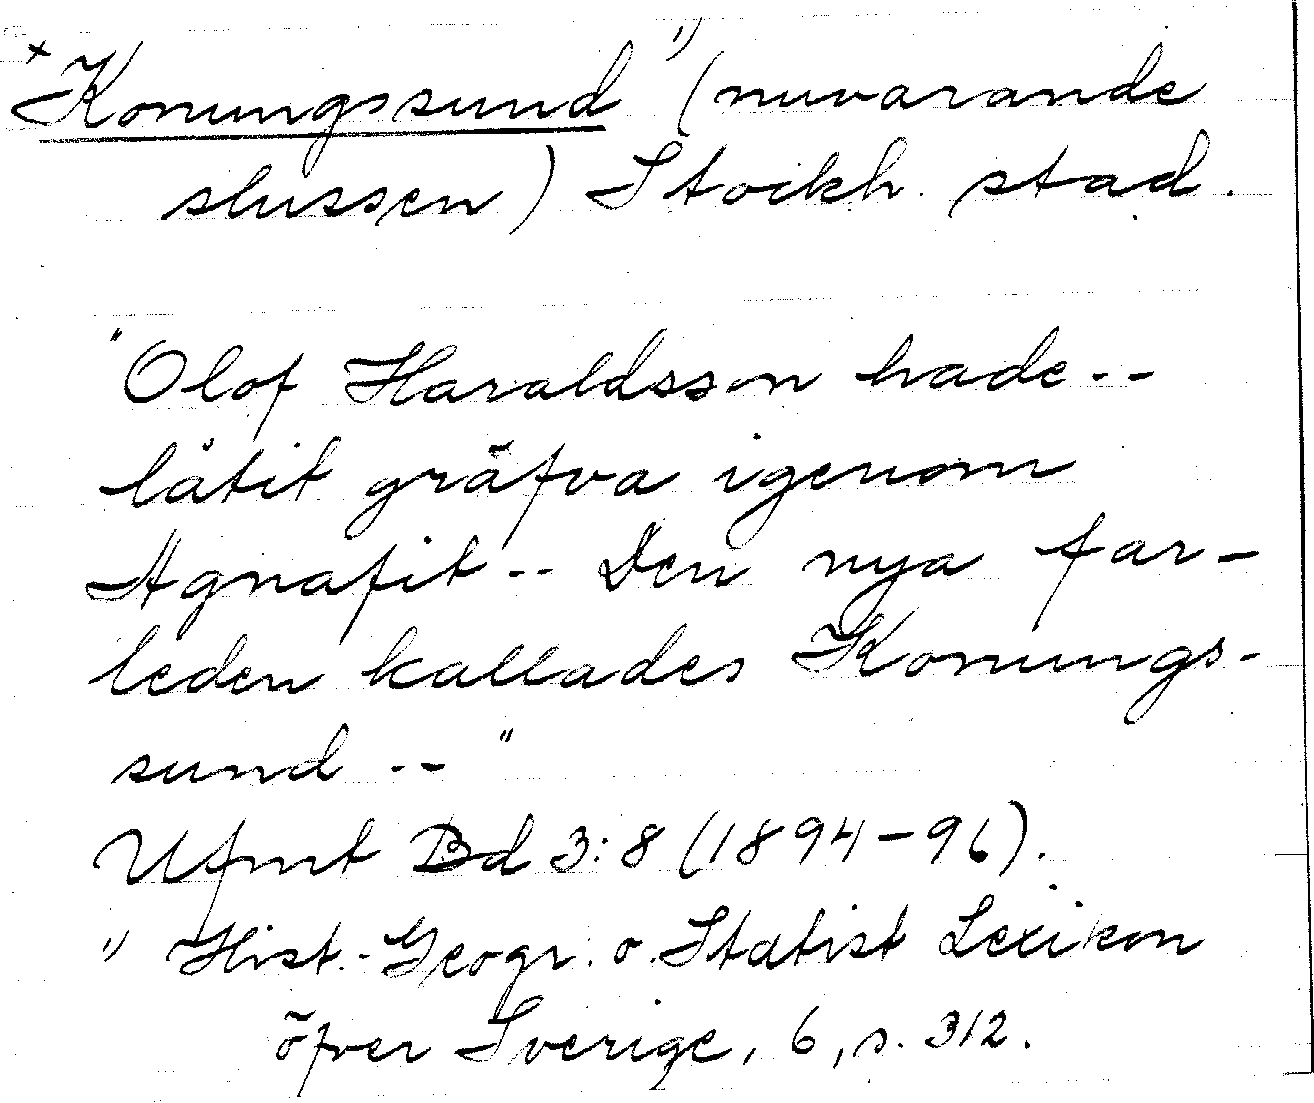 +Konungssund 1) (nuvarande
slussen) Stockh. stad.
"Olof Haraldsson hade--
låtit gräfva igenom
Agnafit -- Den nya far-
leden kallades Konungs-
sund --"
Ufmt Bd 3:8 (1894-96).
1) Hist.-Geogr. o. Statist Lexikon
öfver Sverige, 6, s. 312.